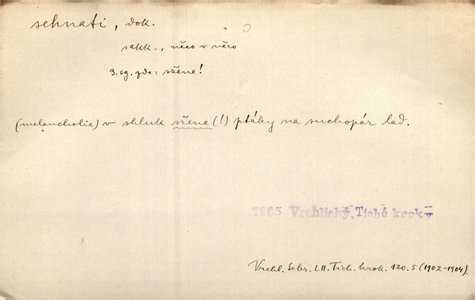 sehnati, dok.
sakk., něco v něco
3. sg. fut: sžene!
(melancholie) v shluk sžene (!) ptáky na suchopár lad.
1905 Vrchlický, Tiché kroky
Vrchl. Sebr. LII. Tich. krok. 120. 5 (1902-1904).